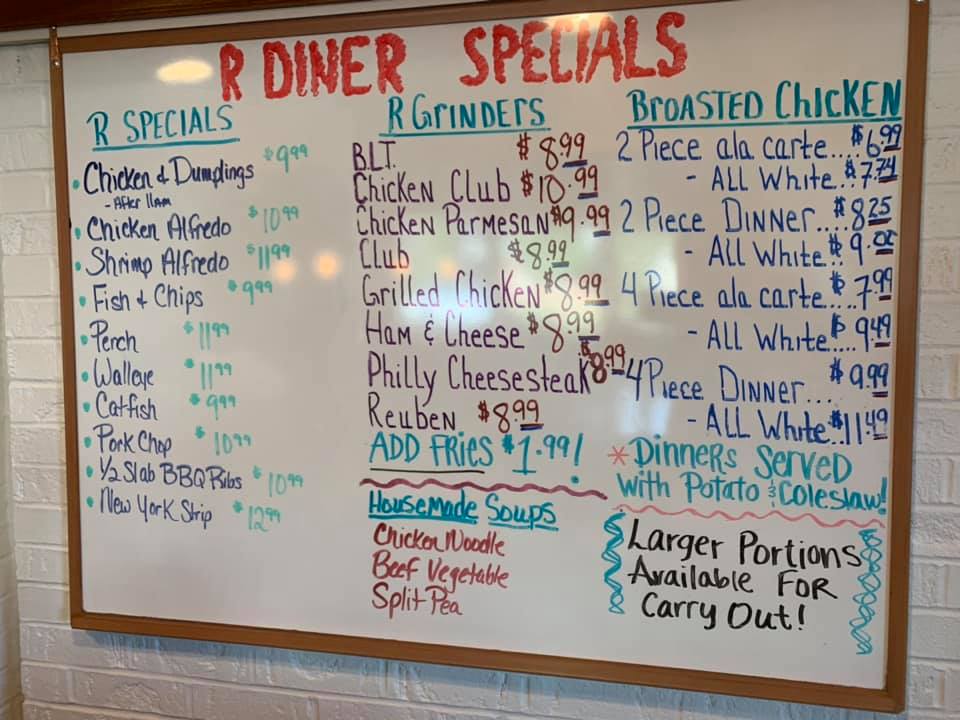 R DINER SPECIALS
R SPECIALS
• Chicken & Dumplings $9.99
- After 11am
• Chicken Alfredo $10.99
• Shrimp Alfredo $11.99
• Fish & Chips $9.99
• Perch $11.99
• Walleye $11.99
• Catfish $9.99
• Pork Chop $10.99
• 1/2 Slab BBQ Ribs $10.99
• New York Strip $12.99
R GRINDERS
B.L.T. $8.99
Chicken Club $10.99
Chicken Parmesan $9.99
Club $8.99
Grilled Chicken $8.99
Ham & Cheese $8.99
Philly Cheesesteak $8.99
Reuben $8.99
ADD FRIES $1.99!
HouseMade Soups
Chicken Noodle
Beef Vegetable
Split Pea
BROASTED CHICKEN
2 Piece ala carte.... $6.99
- ALL White.. $7.74
2 Piece Dinner.... $8.25
- ALL White.. $9.00
4 Piece ala carte.... $7.99
- ALL White.... $9.49
4 Piece Dinner... $9.99
- ALL White.. $11.49
* Dinners Served
with Potato & Coleslaw!
Larger Portions
Available For
Carry Out!